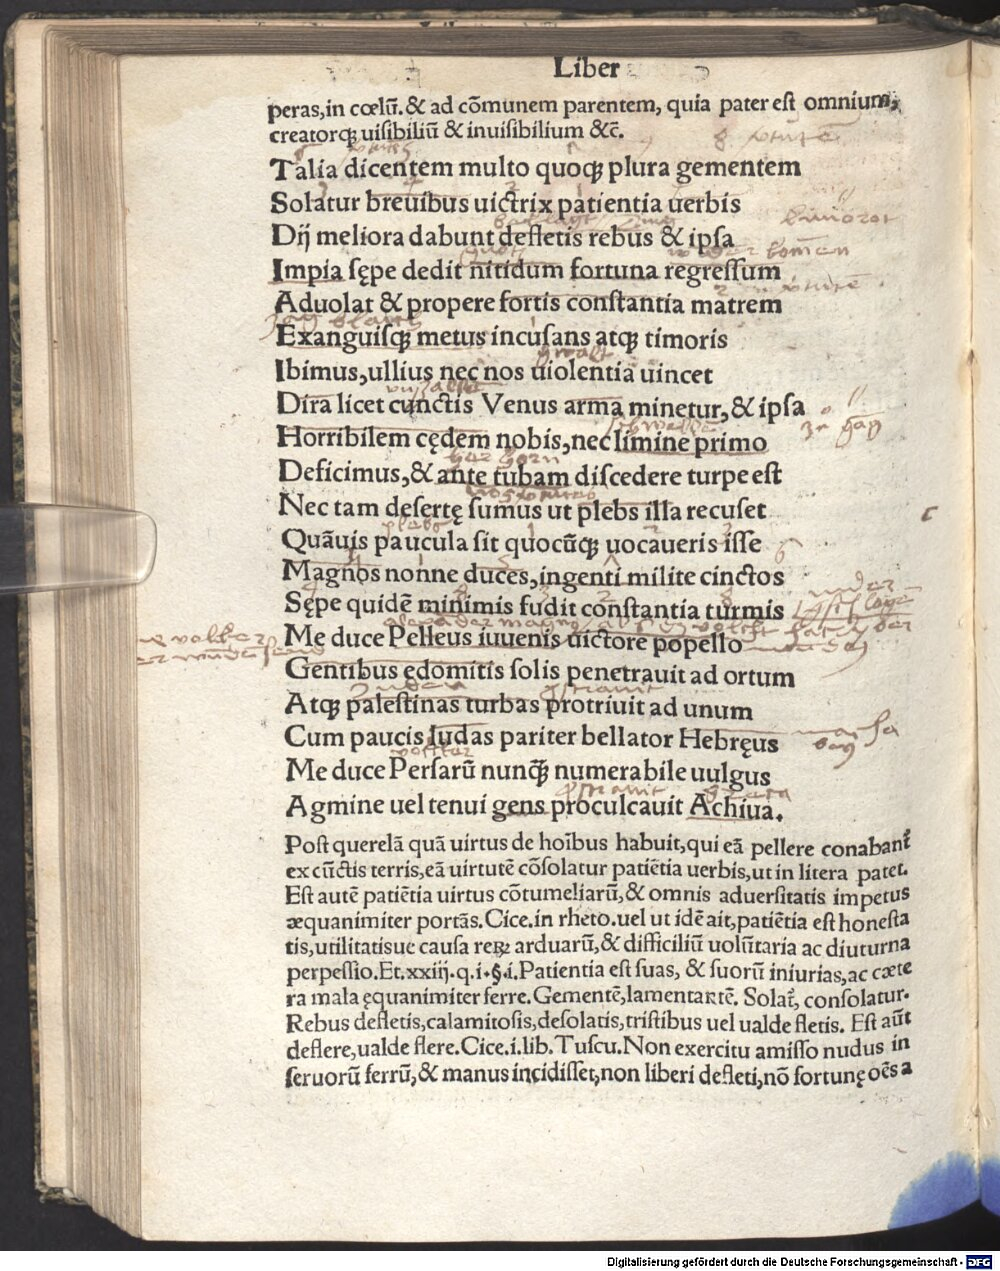 Liber
peras,in cœlū.& ad cōmunem parentem, quia pater est omnium,
creatorqꝫ uisibiliū & inuisibilium &c̄.
Talia dicentem multo quoqꝫ plura gementem
Solatur breuibus uictrix patientia uerbis
Dij meliora dabunt defletis rebus & ipsa
Impia sępe dedit nitidum fortuna regressum
Aduolat & propere fortis constantia matrem
Exanguisqꝫ metus incusans atqꝫ timoris
Ibimus,ullius nec nos uiolentia uincet
Dira licet cunctis Venus arma minetur,& ipsa
Horribilem cędem nobis,nec limine primo
Deficimus,& ante tubam discedere turpe est
Nec tam desertę sumus ut plebs illa recuset
Quāuis paucula sit quocūqꝫ uocaueris isse
Magnos nonne duces,ingenti milite cinctos
Sępe quidē minimis fudit constantia turmis
Me duce Pelleus iuuenis uictore popello
Gentibus edomitis solis penetrauit ad ortum
Atqꝫ palestinas turbas protriuit ad unum
Cum paucis Iudas pariter bellator Hebręus
Me duce Persarū nunqꝫ̄ numerabile uulgus
Agmine uel tenui gens proculcauit Achiua.
Post querelā quā uirtus de hoībus habuit,qui eā pellere conabant᷑
ex cūctis terris,eā uirtutē cōsolatur patiētia uerbis,ut in litera patet.
Est autē patiētia uirtus cōtumeliarū,& omnis aduersitatis impetus
æquanimiter portās.Cice.in rheto.uel ut idē ait,patiētia est honesta
tis,utilitatisue causa reꝝ arduarū,& difficiliū uolūtaria ac diuturna
perpessio.Et.xxiij.q.i.§.i.Patientia est suas, & suorū iniurias,ac cæte
ra mala ęquanimiter ferre.Gementē,lamentantē. Solat᷑, consolatur.
Rebus defletis,calamitosis,desolatis,tristibus uel ualde fletis. Est aūt
deflere,ualde flere.Cice.i.lib. Tuscu.Non exercitu amisso nudus in
seruorū ferrū,& manus incidisset,non liberi defleti,nō fortunę oēs a
Digitalisierung gefördert durch die Deutsche Forschungsgemeinschaft - DFG